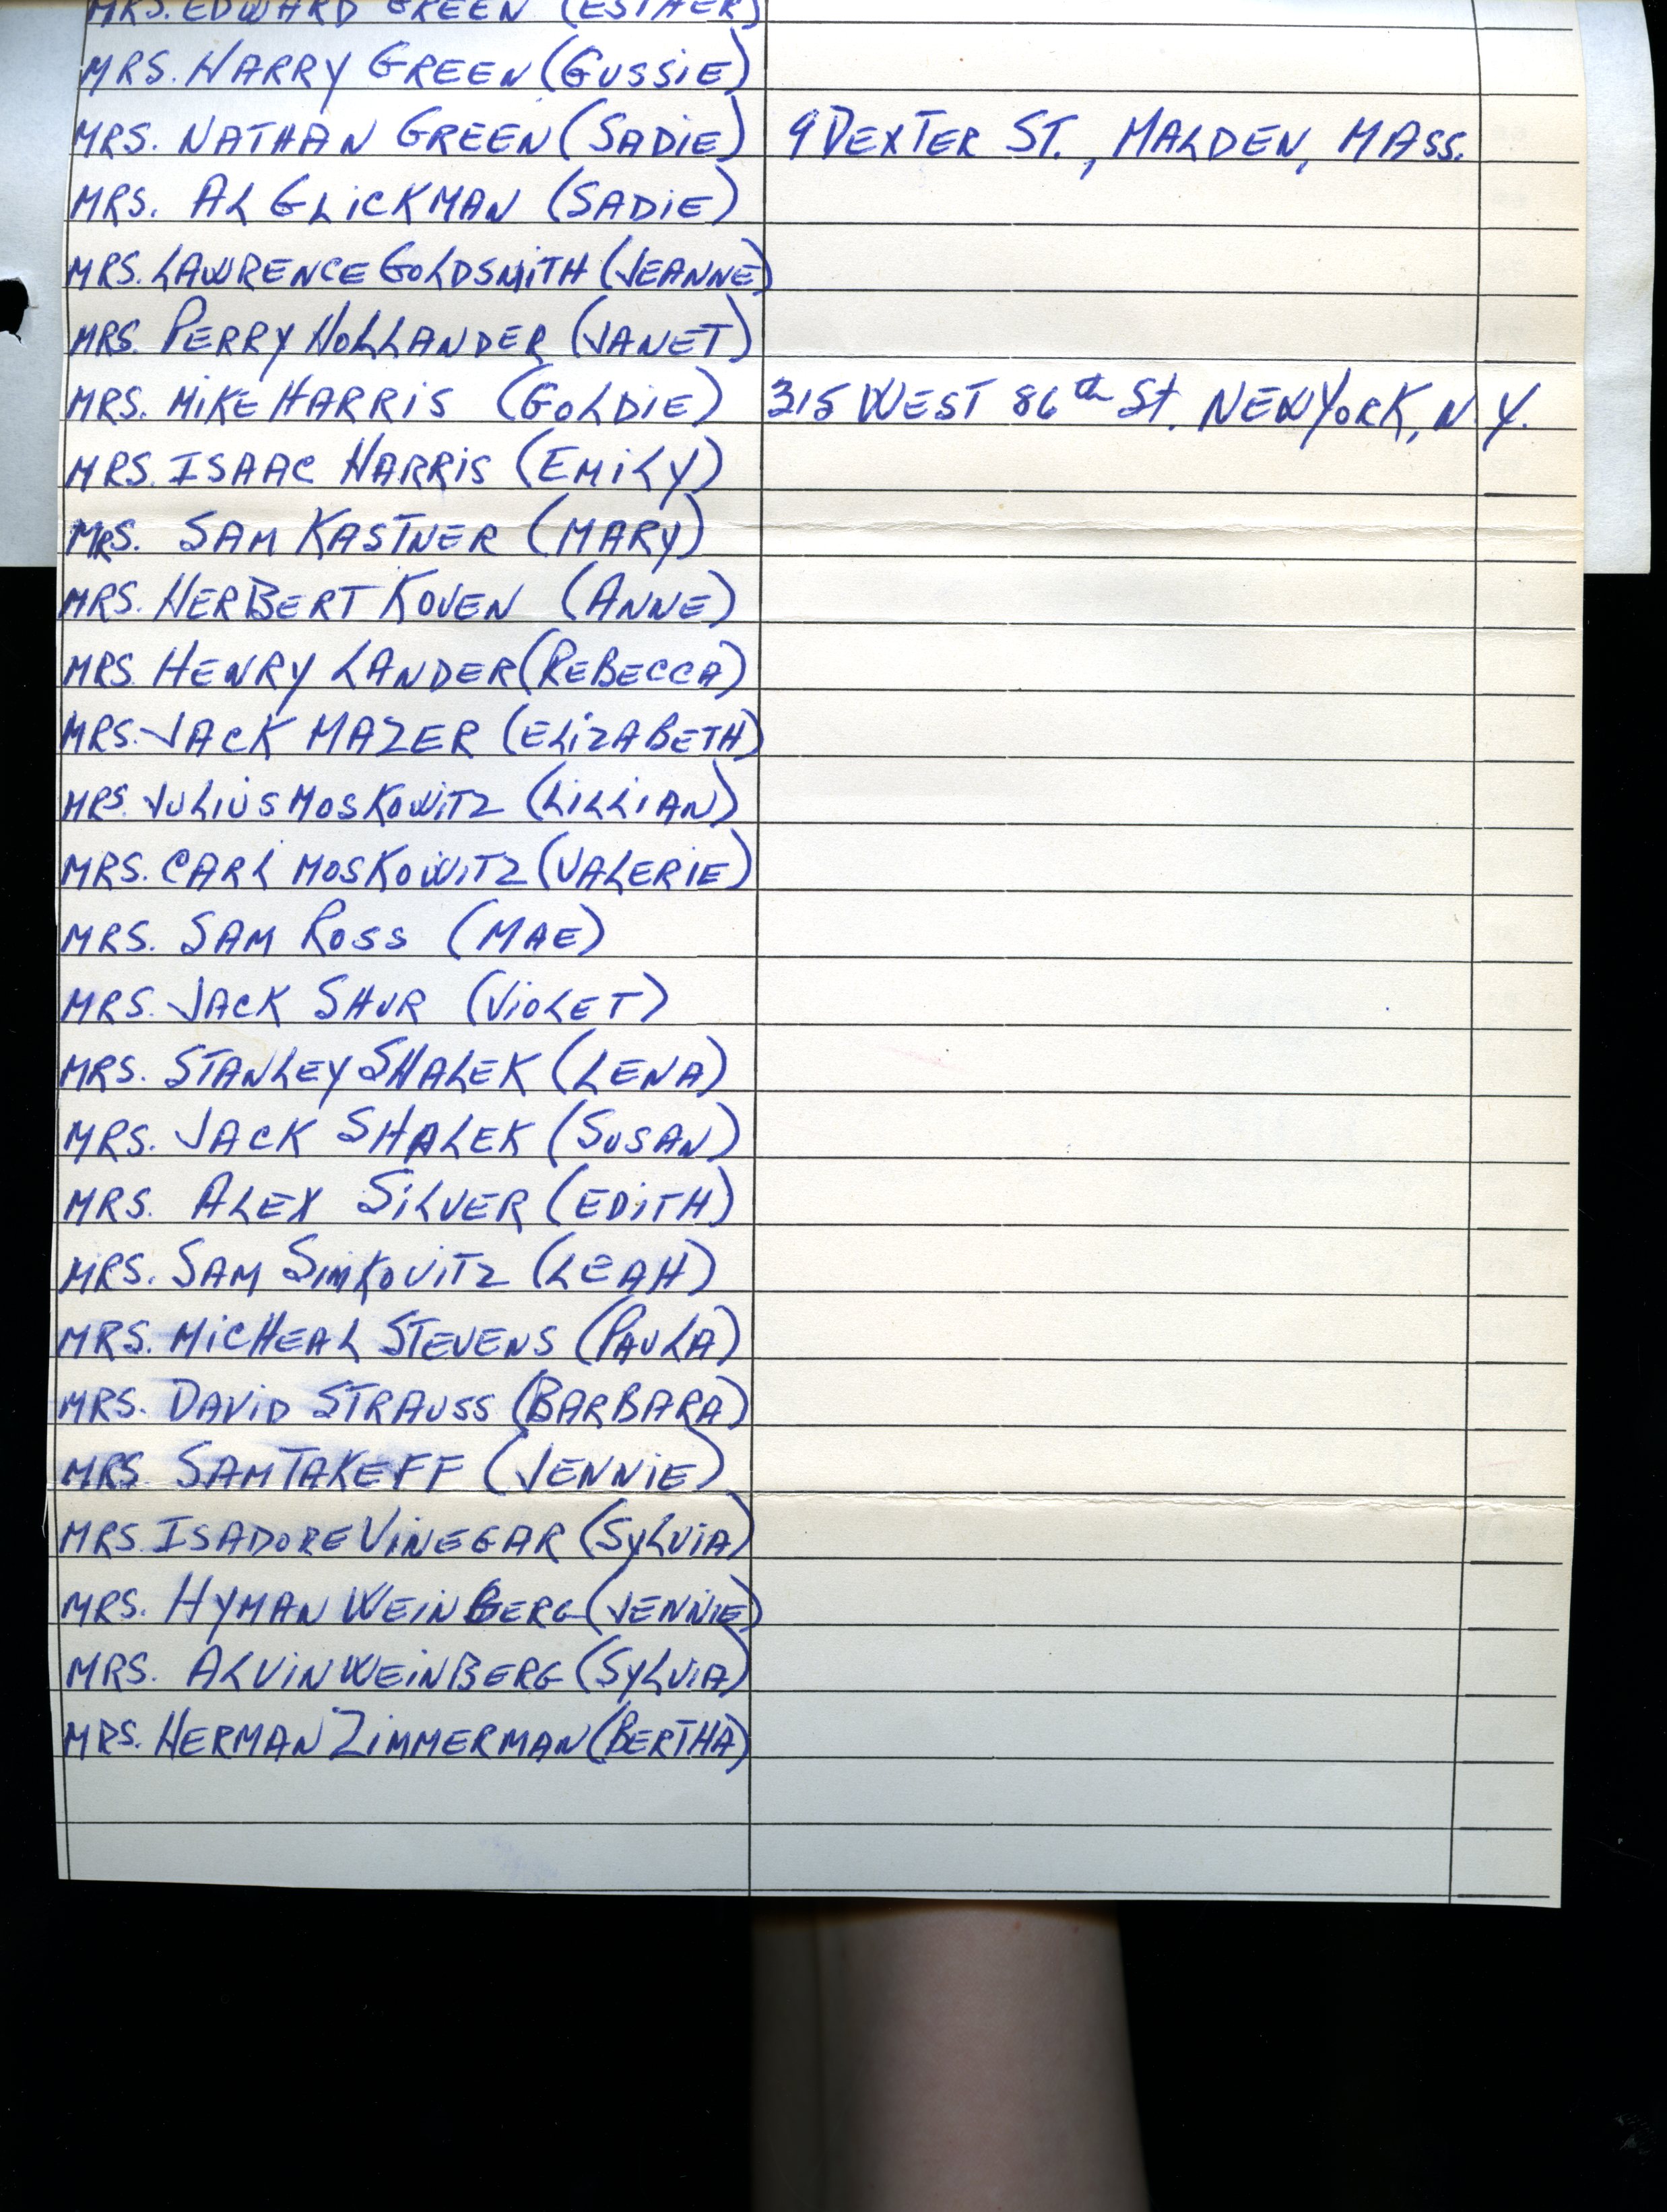 MRS. EDWARD GREEN (ESTHER)
MRS. HARRY GREEN (GUSSIE)
MRS. NATHAN GREEN (SADIE) 9 DEXTER ST., MALDEN, MASS.
MRS. AL GLICKMAN (SADIE)
MRS. LAWRENCE GOLDSMITH (JEANNE)
MRS. PERRY HOLLANDER (JANET)
MRS. MIKE HARRIS (GOLDIE) 315 WEST 86th St. NEW YORK, N.Y.
MRS. ISAAC HARRIS (EMILY)
MRS. SAM KASTNER (MARY)
MRS. HERBERT KOVEN (ANNE)
MRS. HENRY LANDER (REBECCA)
MRS. JACK MAZER (ELIZABETH)
MRS. JULIUS MOSKOWITZ (LILLIAN)
MRS. CARL MOSKOWITZ (VALERIE)
MRS. SAM ROSS (MAE)
MRS. JACK SHUR (VIOLET)
MRS. STANLEY SHALEK (LENA)
MRS. JACK SHALEK (SUSAN)
MRS. ALEX SILVER (EDITH)
MRS. SAM SIMKOVITZ (LEAH)
MRS. MICHEAL STEVENS (PAULA)
MRS. DAVID STRAUSS (BARBARA)
MRS. SAM TAKEFF (JENNIE)
MRS. ISADORE VINEGAR (SYLVIA)
MRS. HYMAN WEINBERG (JENNIE)
MRS. ALVIN WEINBERG (SYLVIA)
MRS. HERMAN ZIMMERMAN (BERTHA)